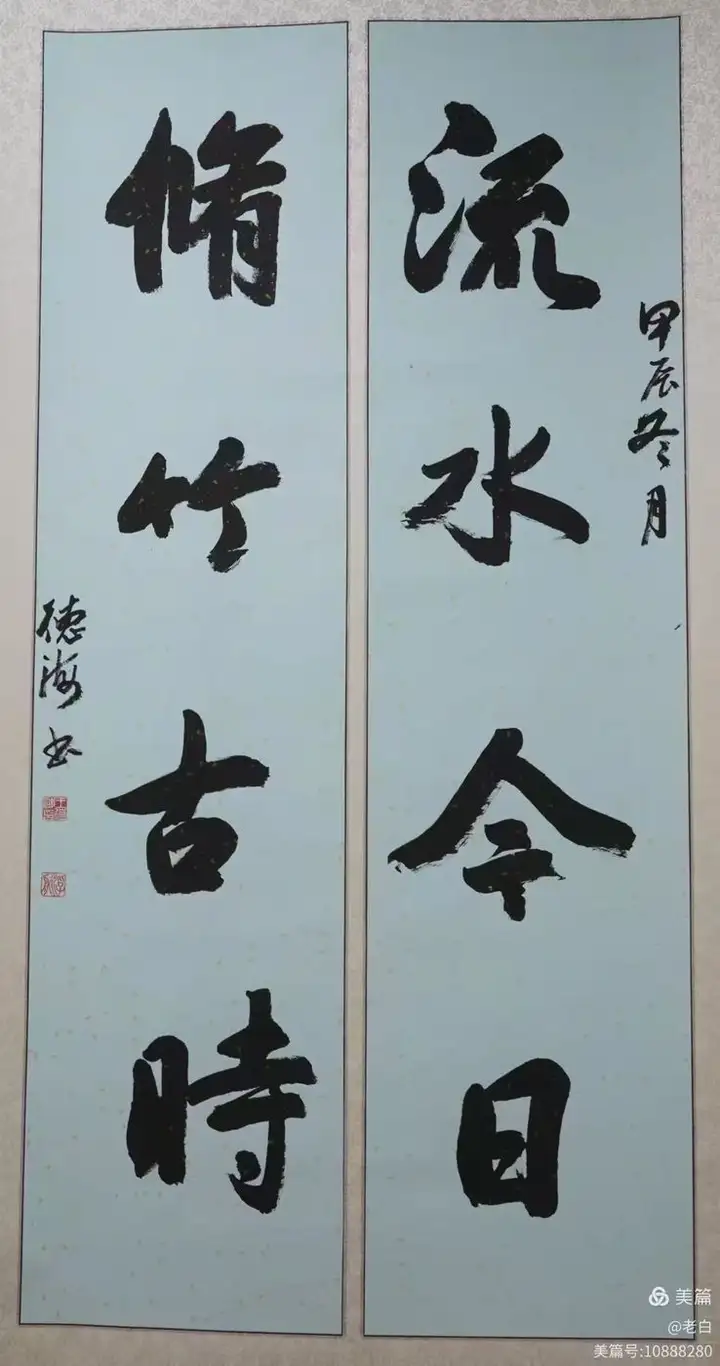 流水今日
甲辰冬月
脩竹古時
德海书
美篇
@老白
美篇号:10888280